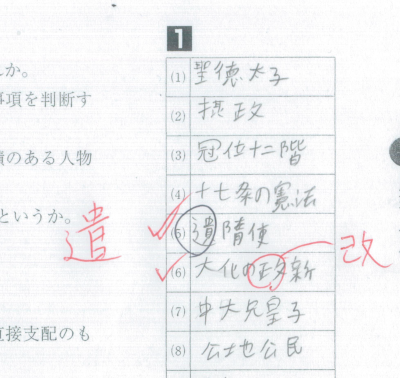 1
んか。
事項を判断す
(1) 聖徳太子
(2) 摂政
績のある人物
(3) 冠位十二階
(4) 十七条の憲法
というか。
(5) 遺隋使
遣
(6) 大化の政新
改
(7) 中大兄皇子
直接支配のも
(8) 公地公民